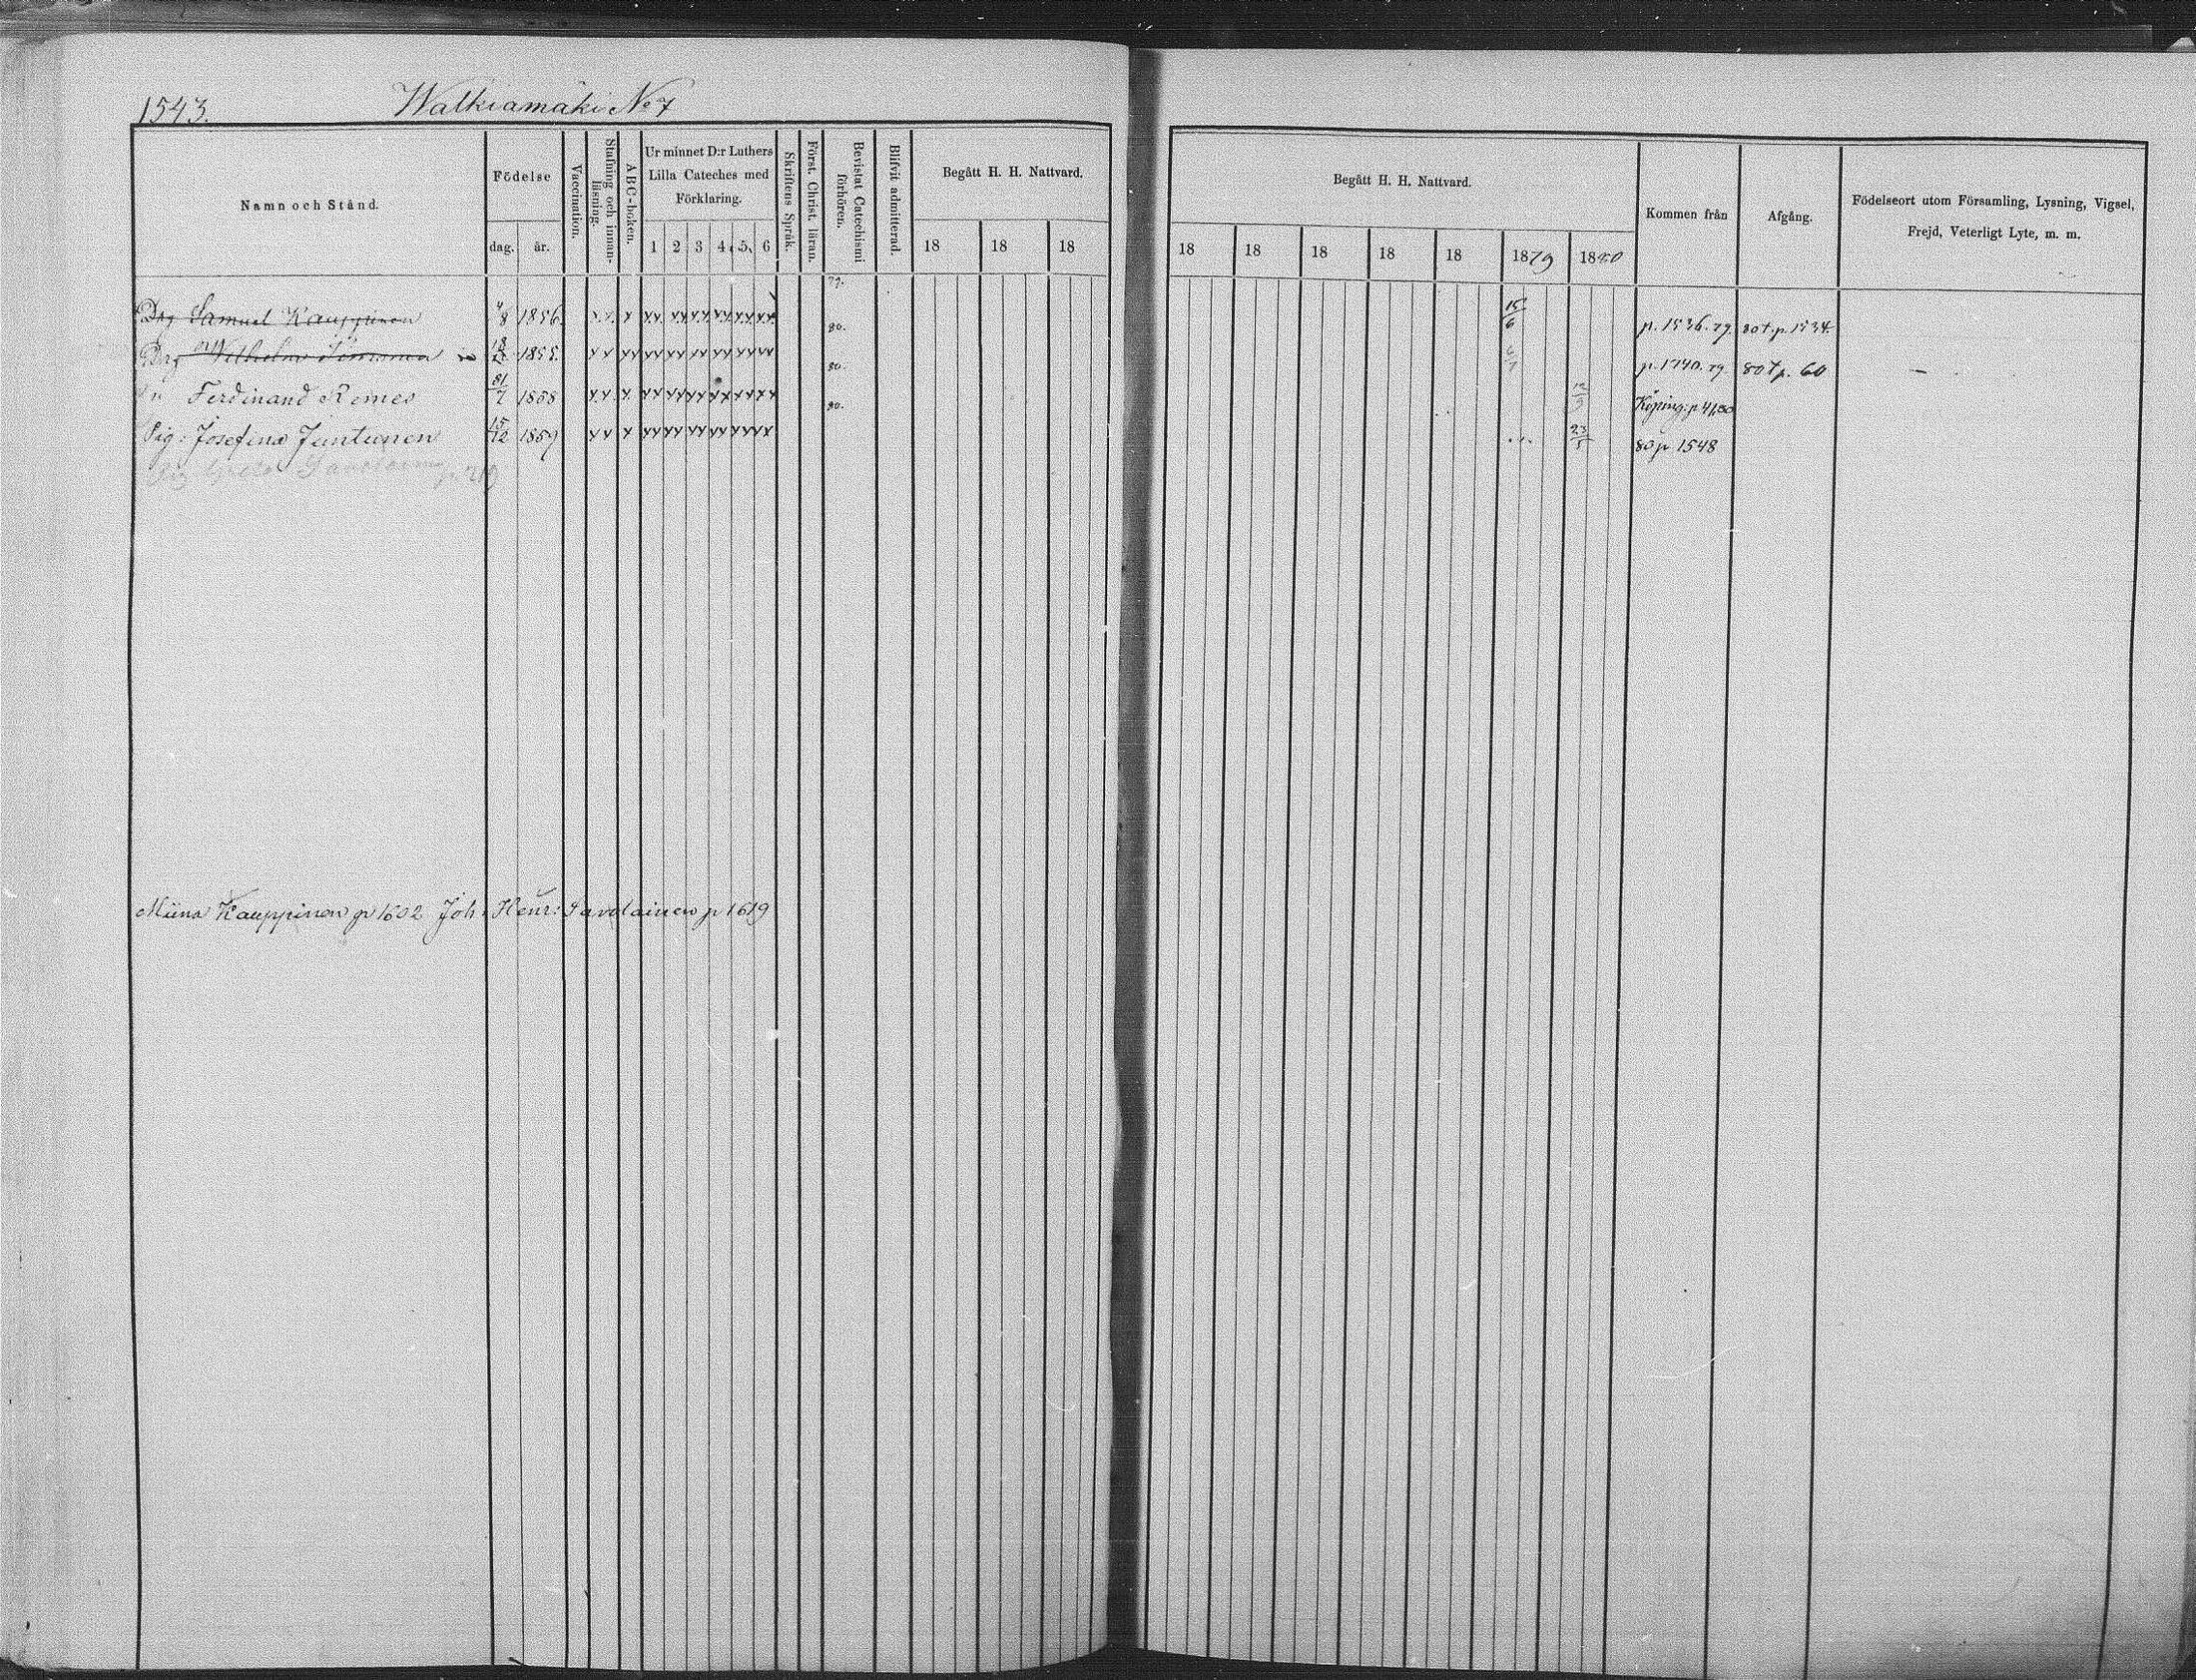 1543. Walkiamäki No 7
Namn och Stånd. Födelse dag. år. Vaccination. Stafning och innanläsning. ABC-boken. Ur minnet D:r Luthers Lilla Cateches med Förklaring. 1 2 3 4 5 6 Skriftens Språk. Först. Christ. läran. Bevistat Catechismi förhören. Blifvit admitterad. Begått H. H. Nattvard. 18 18 18
Begått H. H. Nattvard. 18 18 18 18 18 1879 1880 Kommen från Afgång. Födelseort utom Församling, Lysning, Vigsel, Frejd, Veterligt Lyte, m. m.
79.
Drg Samuel Kauppinen 4/8 1856. x x x xx xx xx xx xx xx 15/6 p. 1536. 79. 80 t. p. 1534.
80.
Drg Wilhelm 1855. x x xx xx xx xx xx xx xx 6/7 p. 1740. 79 80 t p. 60 —
80.
Ferdinand Romes 31/7 1858 x x x xx xx xx xx xx xx Köping: p 41, 80
80.
Pig: Josefina Juntunen 15/12 1859 x x x xx xx xx xx xx xx 23/5 80 p 1548
Miina Kauppinen p 1602 Joh: Henr: Savolainen p 1619